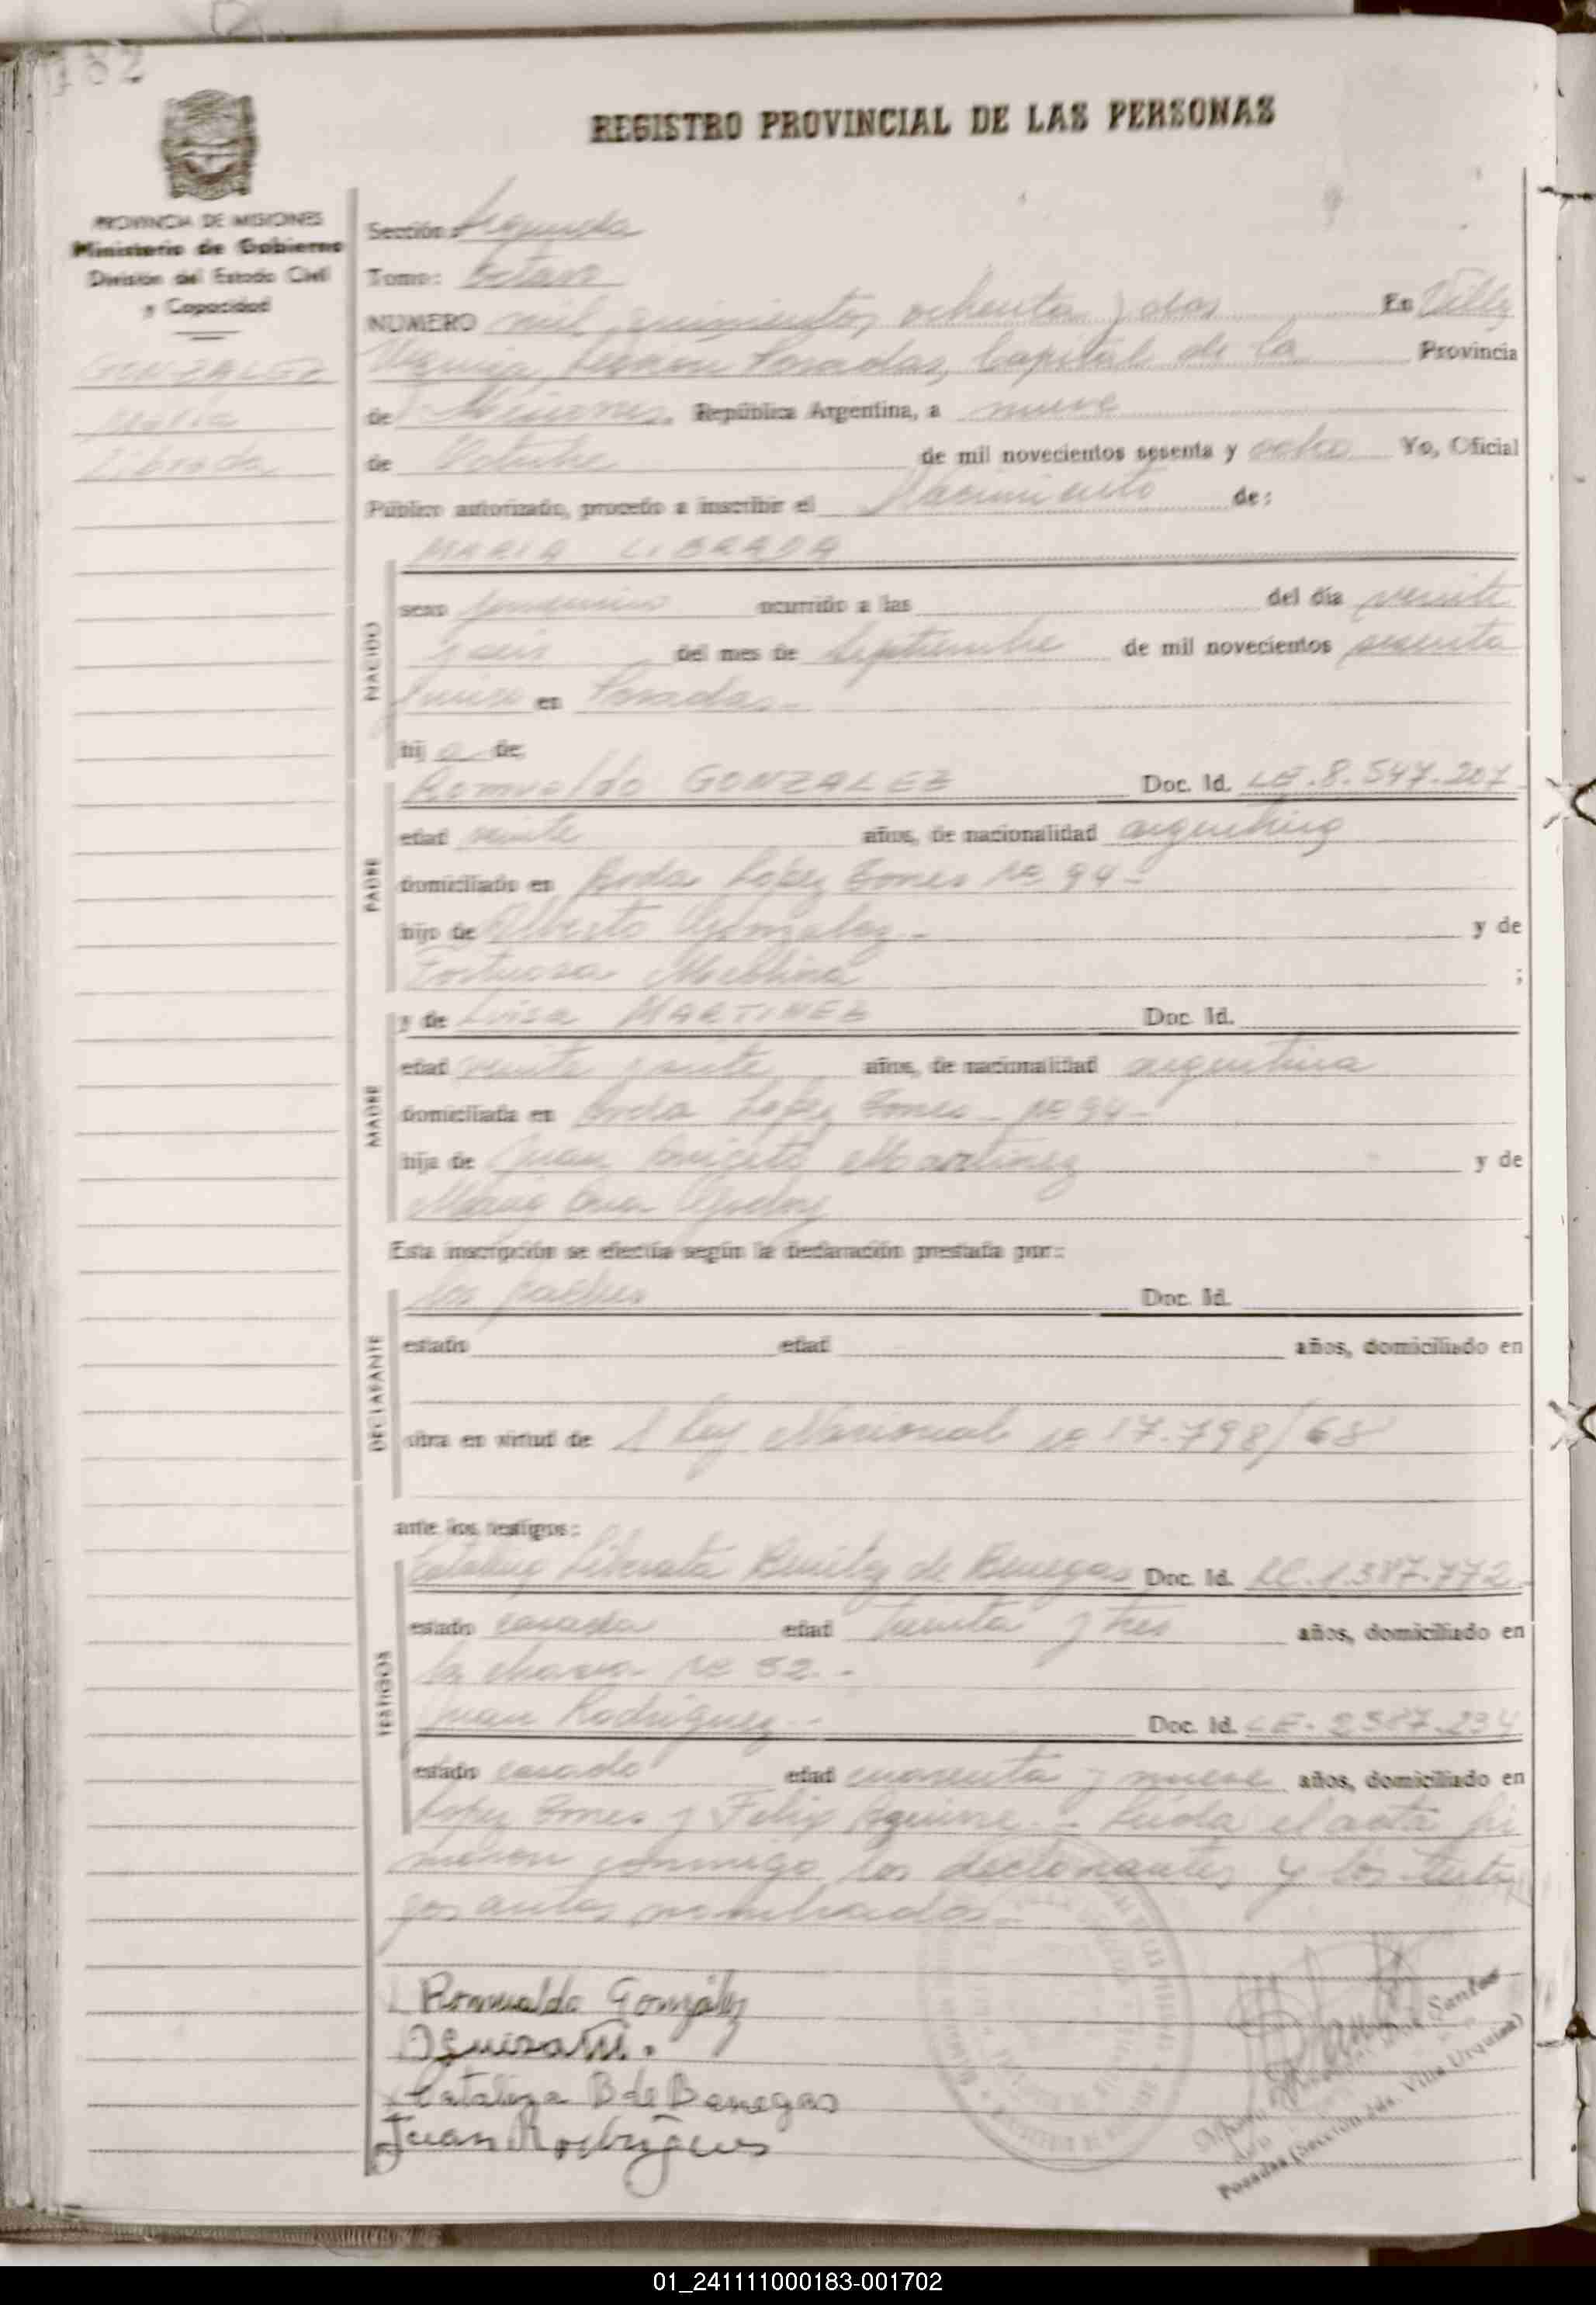 182
REGISTRO PROVINCIAL DE LAS PERSONAS
PROVINCIA DE MISIONES
Ministerio de Gobierno
División del Estado Civil
y Capacidad
GONZALEZ
María
Librada
Sección: Segunda
Tomo: Octavo
NUMERO mil quinientos ochenta y dos En Villa
Urquiza, Posadas, Capital de la Provincia
de Misiones, República Argentina, a nueve
de Octubre de mil novecientos sesenta y ocho Yo, Oficial
Público autorizado, procedo a inscribir el Nacimiento de:
MARIA LIBRADA
NACIDO
sexo femenino ocurrido a las del día veinte
y seis del mes de Septiembre de mil novecientos sesenta
en Posadas.-
hij a de:
PADRE
Romualdo GONZALEZ Doc. Id. LE.8.547.207
edad veinte años, de nacionalidad argentina
domiciliado en López Torres Nº 94-
hijo de Alberto González - y de
;
MADRE
y de Luisa MARTINEZ Doc. Id.
edad veinte y años, de nacionalidad argentina
domiciliada en López Torres - Nº 94-
hija de Juan Martinez y de
Godoy
Esta inscripción se efectúa según la declaración prestada por:
DECLARANTE
los padres Doc. Id.
estado edad años, domiciliado en
obra en virtud de Ley Nacional Nº 17.798/68
ante los testigos:
TESTIGOS
Liberata Benitez de Benegas Doc. Id. LC.1.387.772
estado casada edad treinta y tres años, domiciliado en
la chacra Nº 52.-
Juan Rodriguez.- Doc. Id. LE. 2587.234
estado casado edad cuarenta y nueve años, domiciliado en
López Torres y Felix Aguirre.- Leída el acta fir
maron conmigo los declarantes y los testi
gos antes nombrados.-
Romualdo González
Catalina B de Benegas
Juan Rodrigues
Posadas (Sección 2da. Villa Urquiza)
01_241111000183-001702